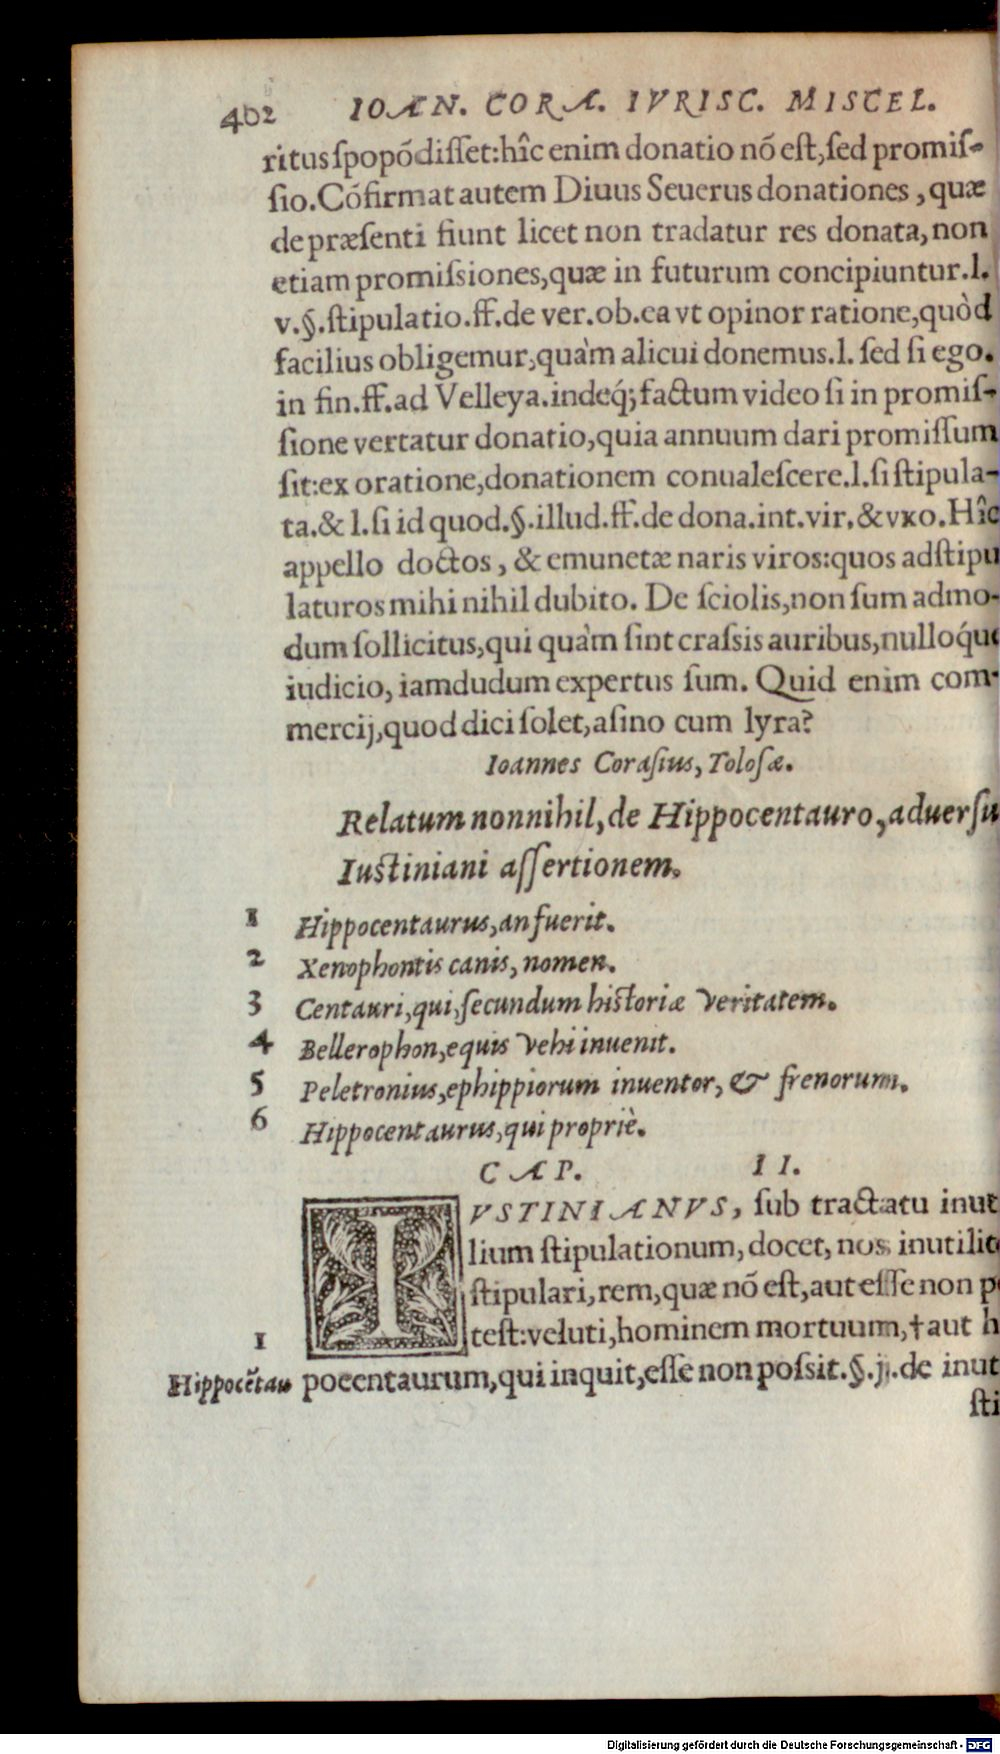 402 IOAN. CORA. IVRISC. MISCEL.
ritus spopõdisset:hîc enim donatio nõ est,sed promis-
sio.Cõfirmat autem Diuus Seuerus donationes, quæ
de præsenti fiunt licet non tradatur res donata,non
etiam promissiones,quæ in futurum concipiuntur.l.
v.§.stipulatio.ff.de ver.ob.ea vt opinor ratione,quòd
facilius obligemur,quàm alicui donemus.l. sed si ego.
in fin.ff.ad Velleya.indeq́; factum video si in promis-
sione vertatur donatio,quia annuum dari promissum
sit:ex oratione,donationem conualescere.l.si stipula-
ta.& l.si id quod.§.illud.ff.de dona.int.vir.& vxo.Hîc
appello doctos, & emunctæ naris viros:quos adstipu
laturos mihi nihil dubito. De sciolis,non sum admo-
dum sollicitus,qui quàm sint crassis auribus,nulloq́ue
iudicio, iamdudum expertus sum. Quid enim com-
mercij,quod dici solet,asino cum lyra?
Ioannes Corasius, Tolosæ.
Relatum nonnihil,de Hippocentauro, aduersu
Iustiniani assertionem.
1 Hippocentaurus,an fuerit.
2 Xenophontis canis, nomen.
3 Centauri,qui,secundum historiæ veritatem.
4 Bellerophon,equis vehi inuenit.
5 Peletronius,ephippiorum inuentor, & frenorum.
6 Hippocentaurus,qui propriè.
CAP. II.
IVSTINIANVS, sub tractatu inut
lium stipulationum, docet, nos inutilit
stipulari, rem, quæ nõ est, aut esse non p
test:veluti, hominem mortuum,†aut h
1
Hippocẽtau pocentaurum,qui inquit,esse non possit.§.j.de inut
sti
Digitalisierung gefördert durch die Deutsche Forschungsgemeinschaft - DFG